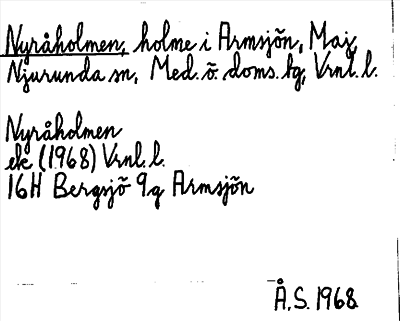 Nyråholmen, holme i Armsjön, Maj,
Njurunda sn, Med. ö. doms. tg, Vrnl. l.
Nyråholmen
ek (1968) Vrnl. l.
16H Bergsjö 9g Armsjön
Å.S. 1968